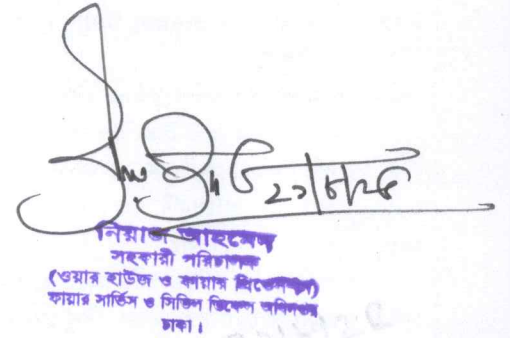 ২১/৮/২৫
নিয়াজ আহমেদ
সহকারী পরিচালক
(ওয়ার হাউজ ও ফায়ার প্রিভেনশন)
ফায়ার সার্ভিস ও সিভিল ডিফেন্স অধিদপ্তর
ঢাকা।